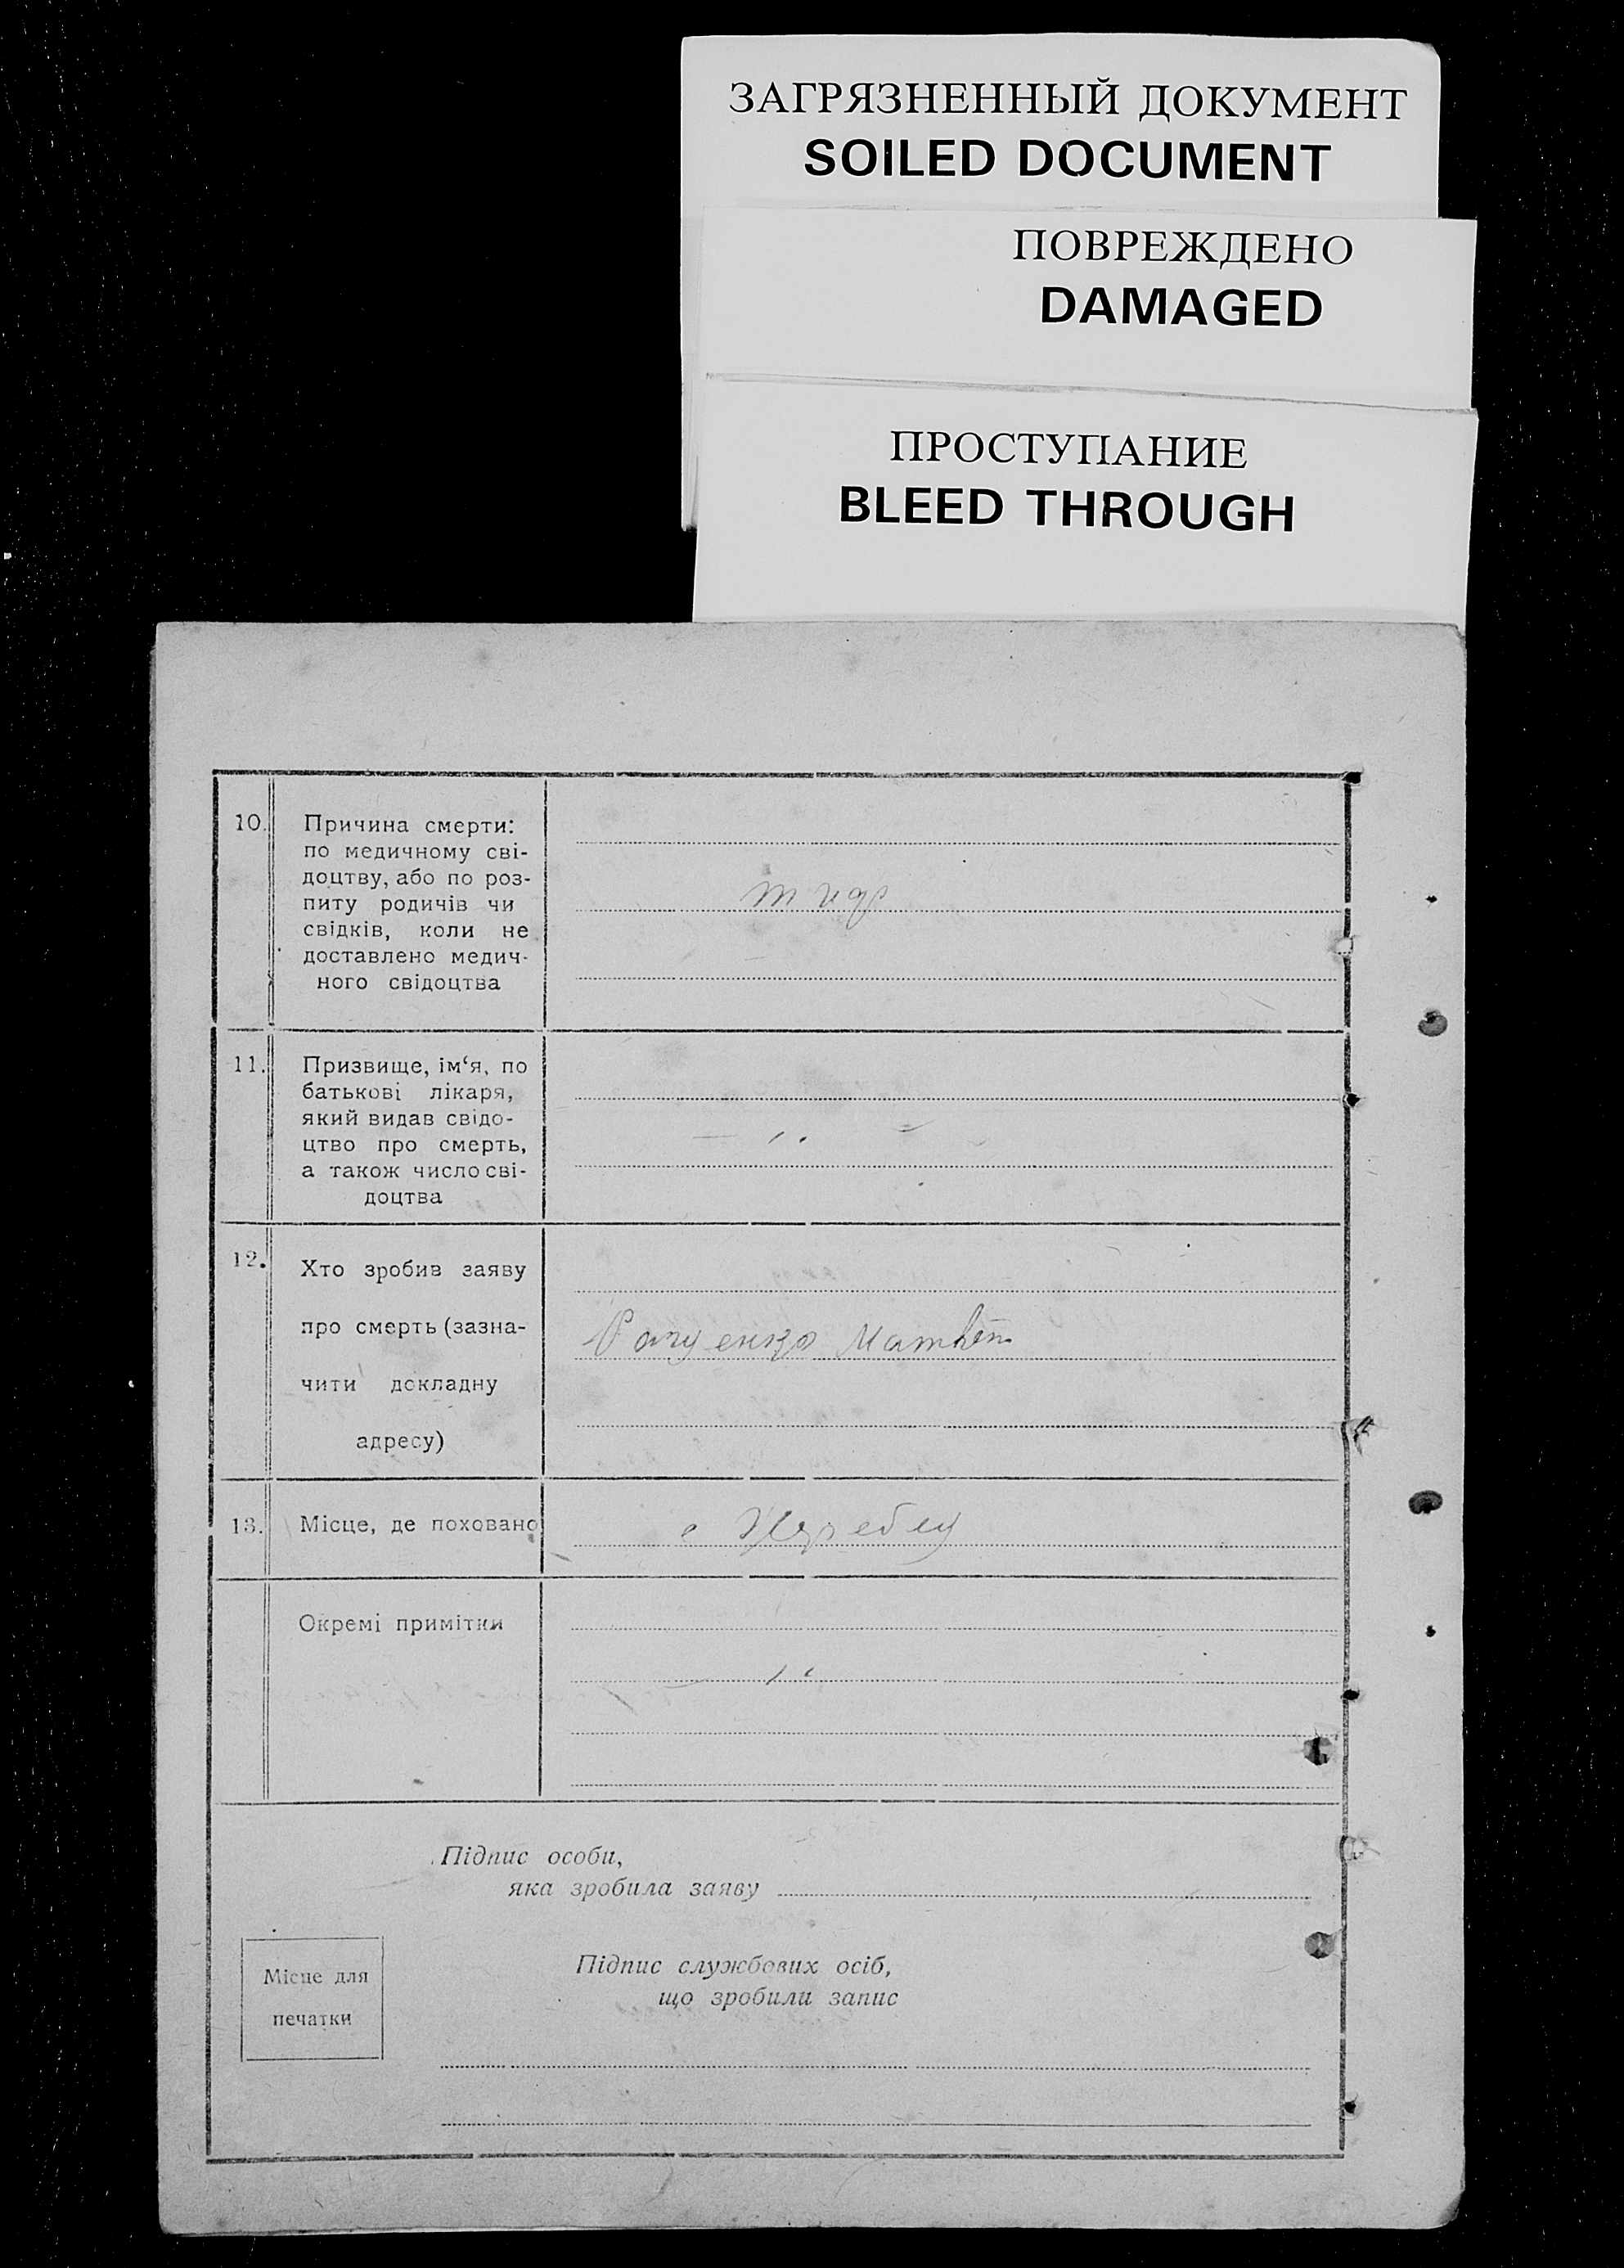 ЗАГРЯЗНЕННЫЙ ДОКУМЕНТ
SOILED DOCUMENT
ПОВРЕЖДЕНО
DAMAGED
ПРОСТУПАНИЕ
BLEED THROUGH
10. Причина смерти:
по медичному сві-
доцтву, або по роз-
питу родичів чи
свідків, коли не
доставлено медич-
ного свідоцтва
тиф
11. Призвище, ім‘я, по
батькові лікаря,
який видав свідо-
цтво про смерть,
а також число сві-
доцтва
12. Хто зробив заяву
про смерть (зазна-
чити докладну
адресу)
Матвей
13. Місце, де поховано
с
Окремі примітки
Підпис особи,
яка зробила заяву
Місце для
печатки
Підпис службових осіб,
що зробили запис